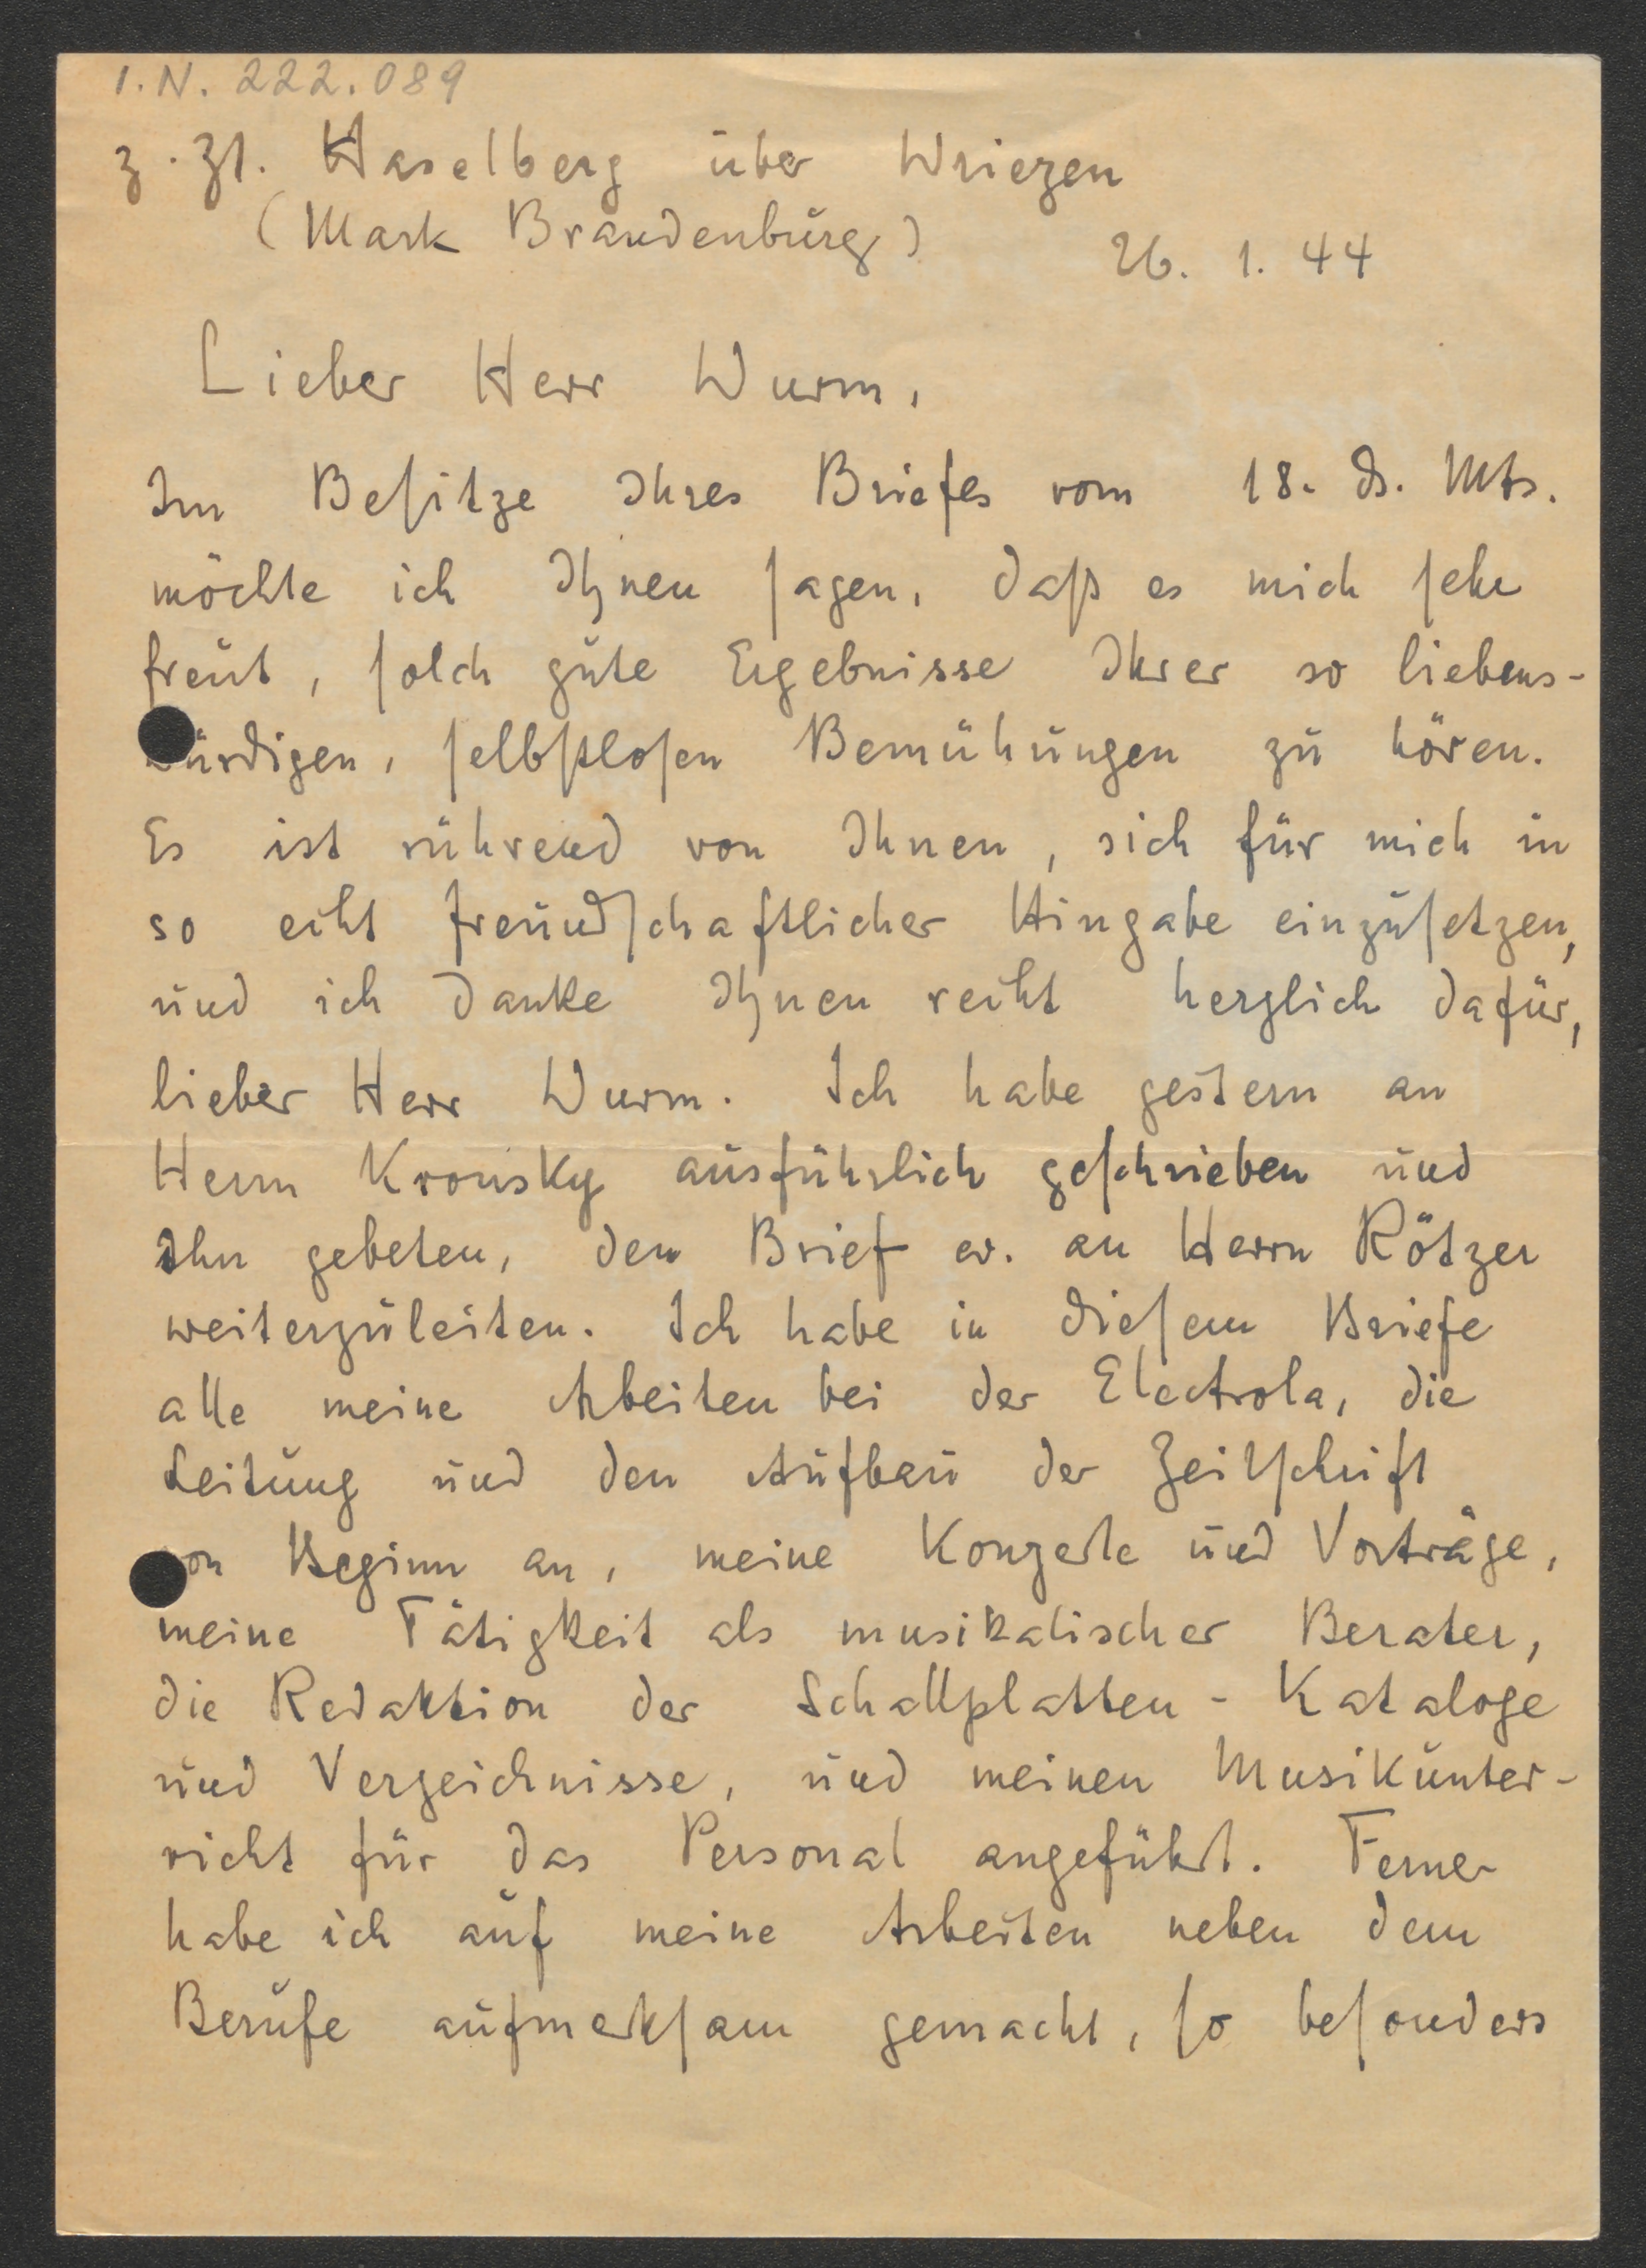 I.N. 222.089
z. Zt. Haselberg über Wriezen
(Mark Brandenburg)
26. 1. 44
Lieber Herr Wurm,
Im Beſitze Ihres Briefes vom 18. ds. Mts.
möchte ich Ihnen ſagen, daß es mich ſehr
freut, ſolch gute Ergebnisse Ihrer so liebens-
würdigen, ſelbſtloſen Bemühungen zu hören.
Es ist rührend von Ihnen, sich für mich in
so echt freundſchaftlicher Hingabe einzuſetzen,
und ich danke Ihnen recht herzlich dafür,
lieber Herr Wurm. Ich habe gestern an
Herrn Kronsky ausführlich geſchrieben und
Ihn gebeten, den Brief ev. an Herrn Rötzer
weiterzuleiten. Ich habe in dieſem Briefe
alle meine Arbeiten bei der Electrola, die
Leitung und den Aufbau der Zeitſchrift
von Beginn an, meine Konzerte und Vorträge,
meine Tätigkeit als musikalischer Berater,
die Redaktion der Schallplatten - Kataloge
und Verzeichnisse, und meinen Musikunter-
richt für das Personal angeführt. Ferner
habe ich auf meine Arbeiten neben dem
Berufe aufmerkſam gemacht, ſo beſonders